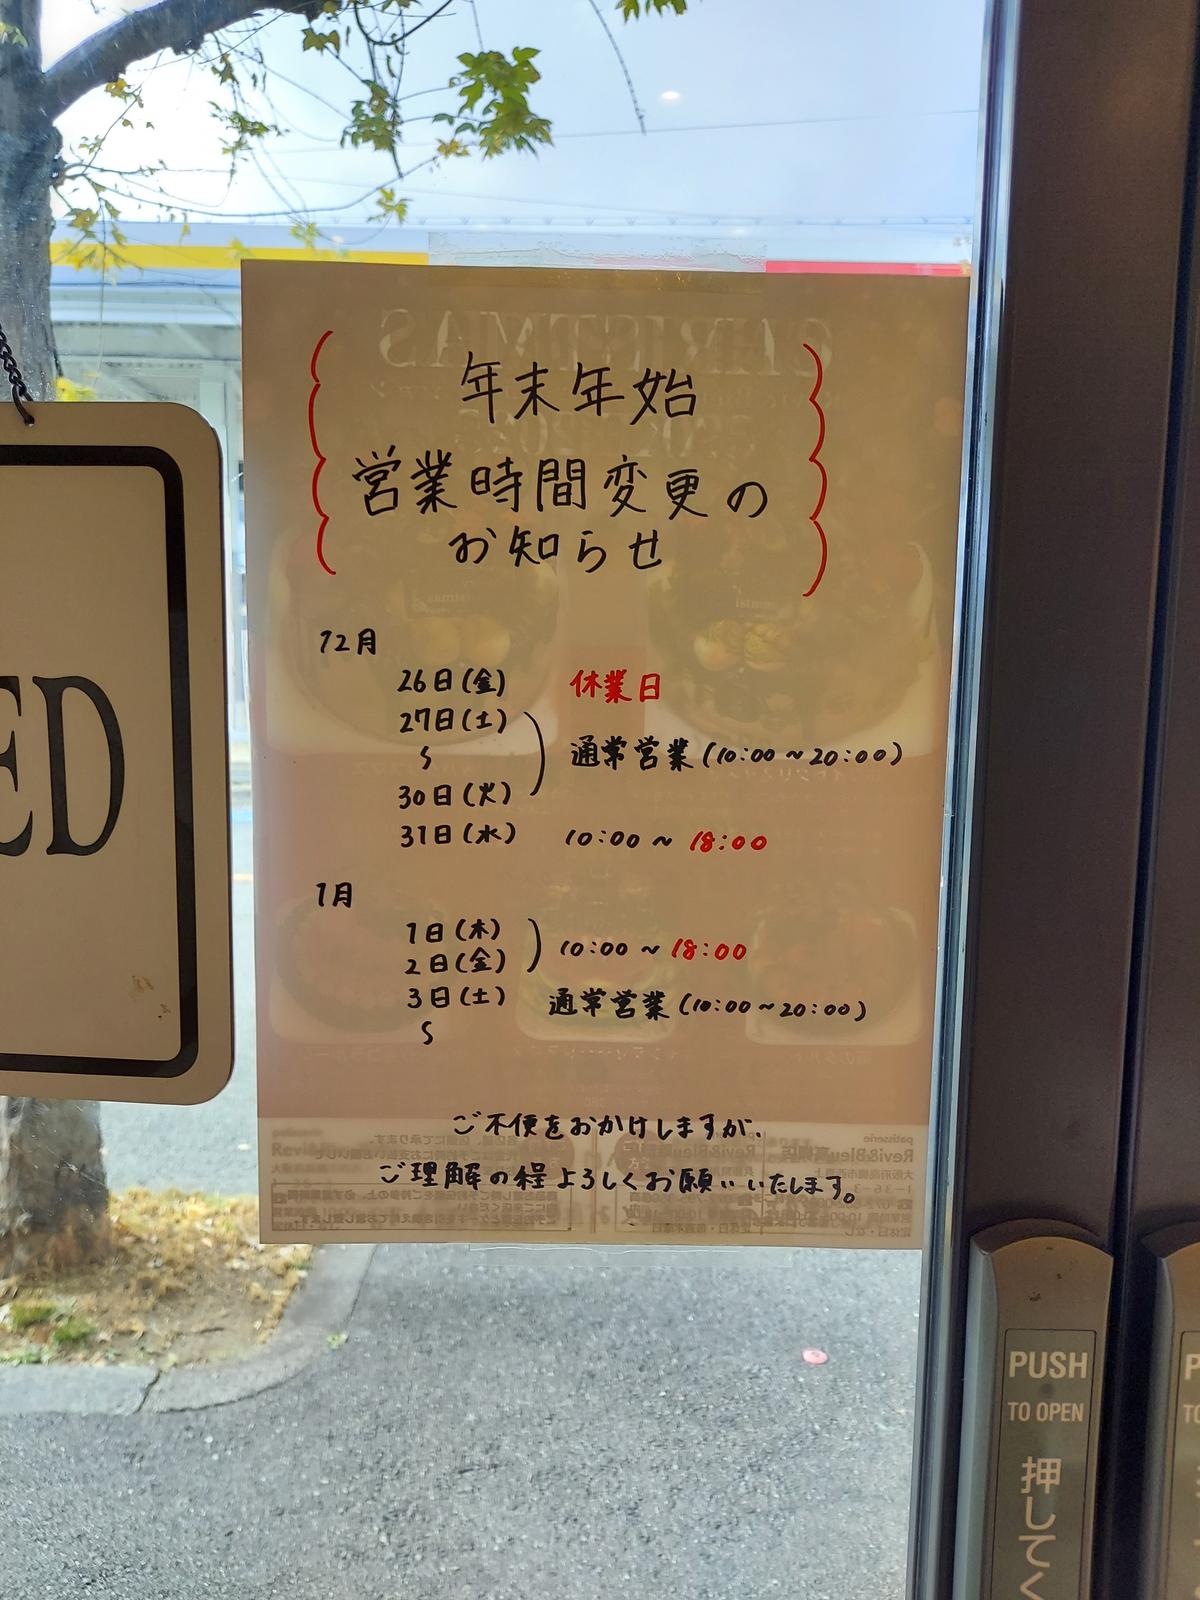 年末年始
営業時間変更の
お知らせ
12月
26日(金) 休業日
27日(土)
〜 通常営業(10:00~20:00)
30日(火)
31日(水) 10:00~18:00
1月
1日(木)
2日(金) 10:00~18:00
3日(土) 通常営業(10:00~20:00)
〜
ご不便をおかけしますが、
ご理解の程よろしくお願いいたします。
ED
PUSH
TO OPEN
押してく
CHRISTMAS
patisserie